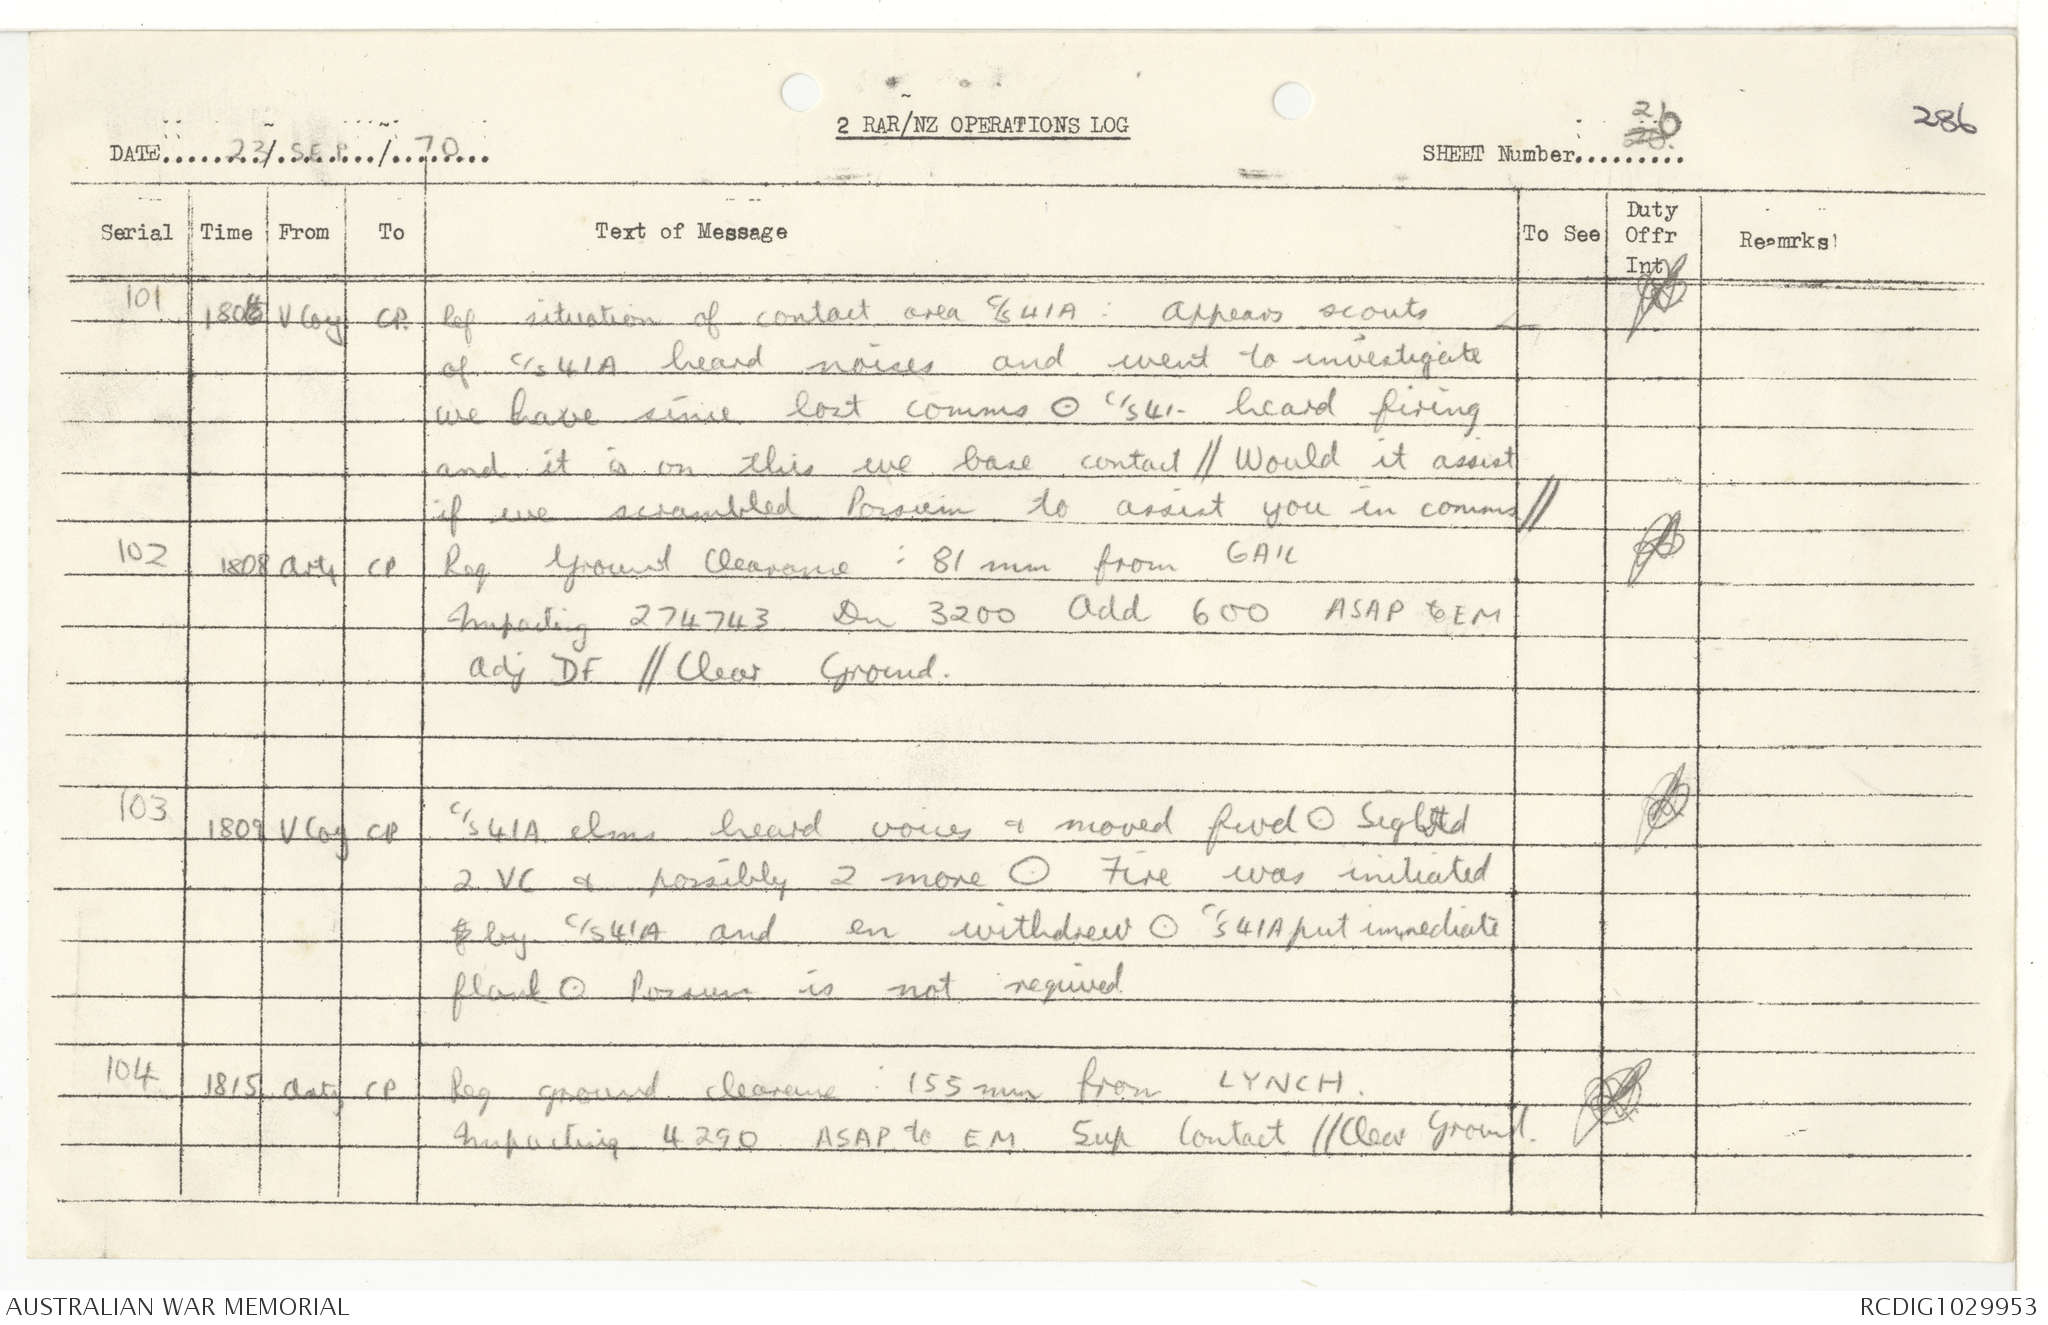 286
2 RAR/NZ OPERATIONS LOG
DATE 23/SEP/70
SHEET Number 26
Serial Time From To Text of Message To See Duty Offr Int Reamrks
101 1804 V Coy CP. Ref situation of contact area C/S 41A: Appears scouts
of C/S 41A heard noises and went to investigate
we have since lost comms ⊙ C/S 41- heard firing
and it is on this we base contact // Would it assist
if we scrambled Possum to assist you in comms //
102 1808 Arty CP Req Ground Clearance : 81 mm from GAIL
Impacting 274743 Dn 3200 Add 600 ASAP to EM
Adj DF // Clear Ground.
103 1809 V Coy CP C/S 41A elms heard voices & moved fwd ⊙ Sighted
2 VC & possibly 2 more ⊙ Fire was initiated
by C/S 41A and en withdrew ⊙ C/S 41A put immediate
flank ⊙ Possum is not required
104 1815 Arty CP Req ground clearance : 155 mm from LYNCH.
Impacting 4290 ASAP to EM Sup Contact // Clear Ground.
AUSTRALIAN WAR MEMORIAL
RCDIG1029953